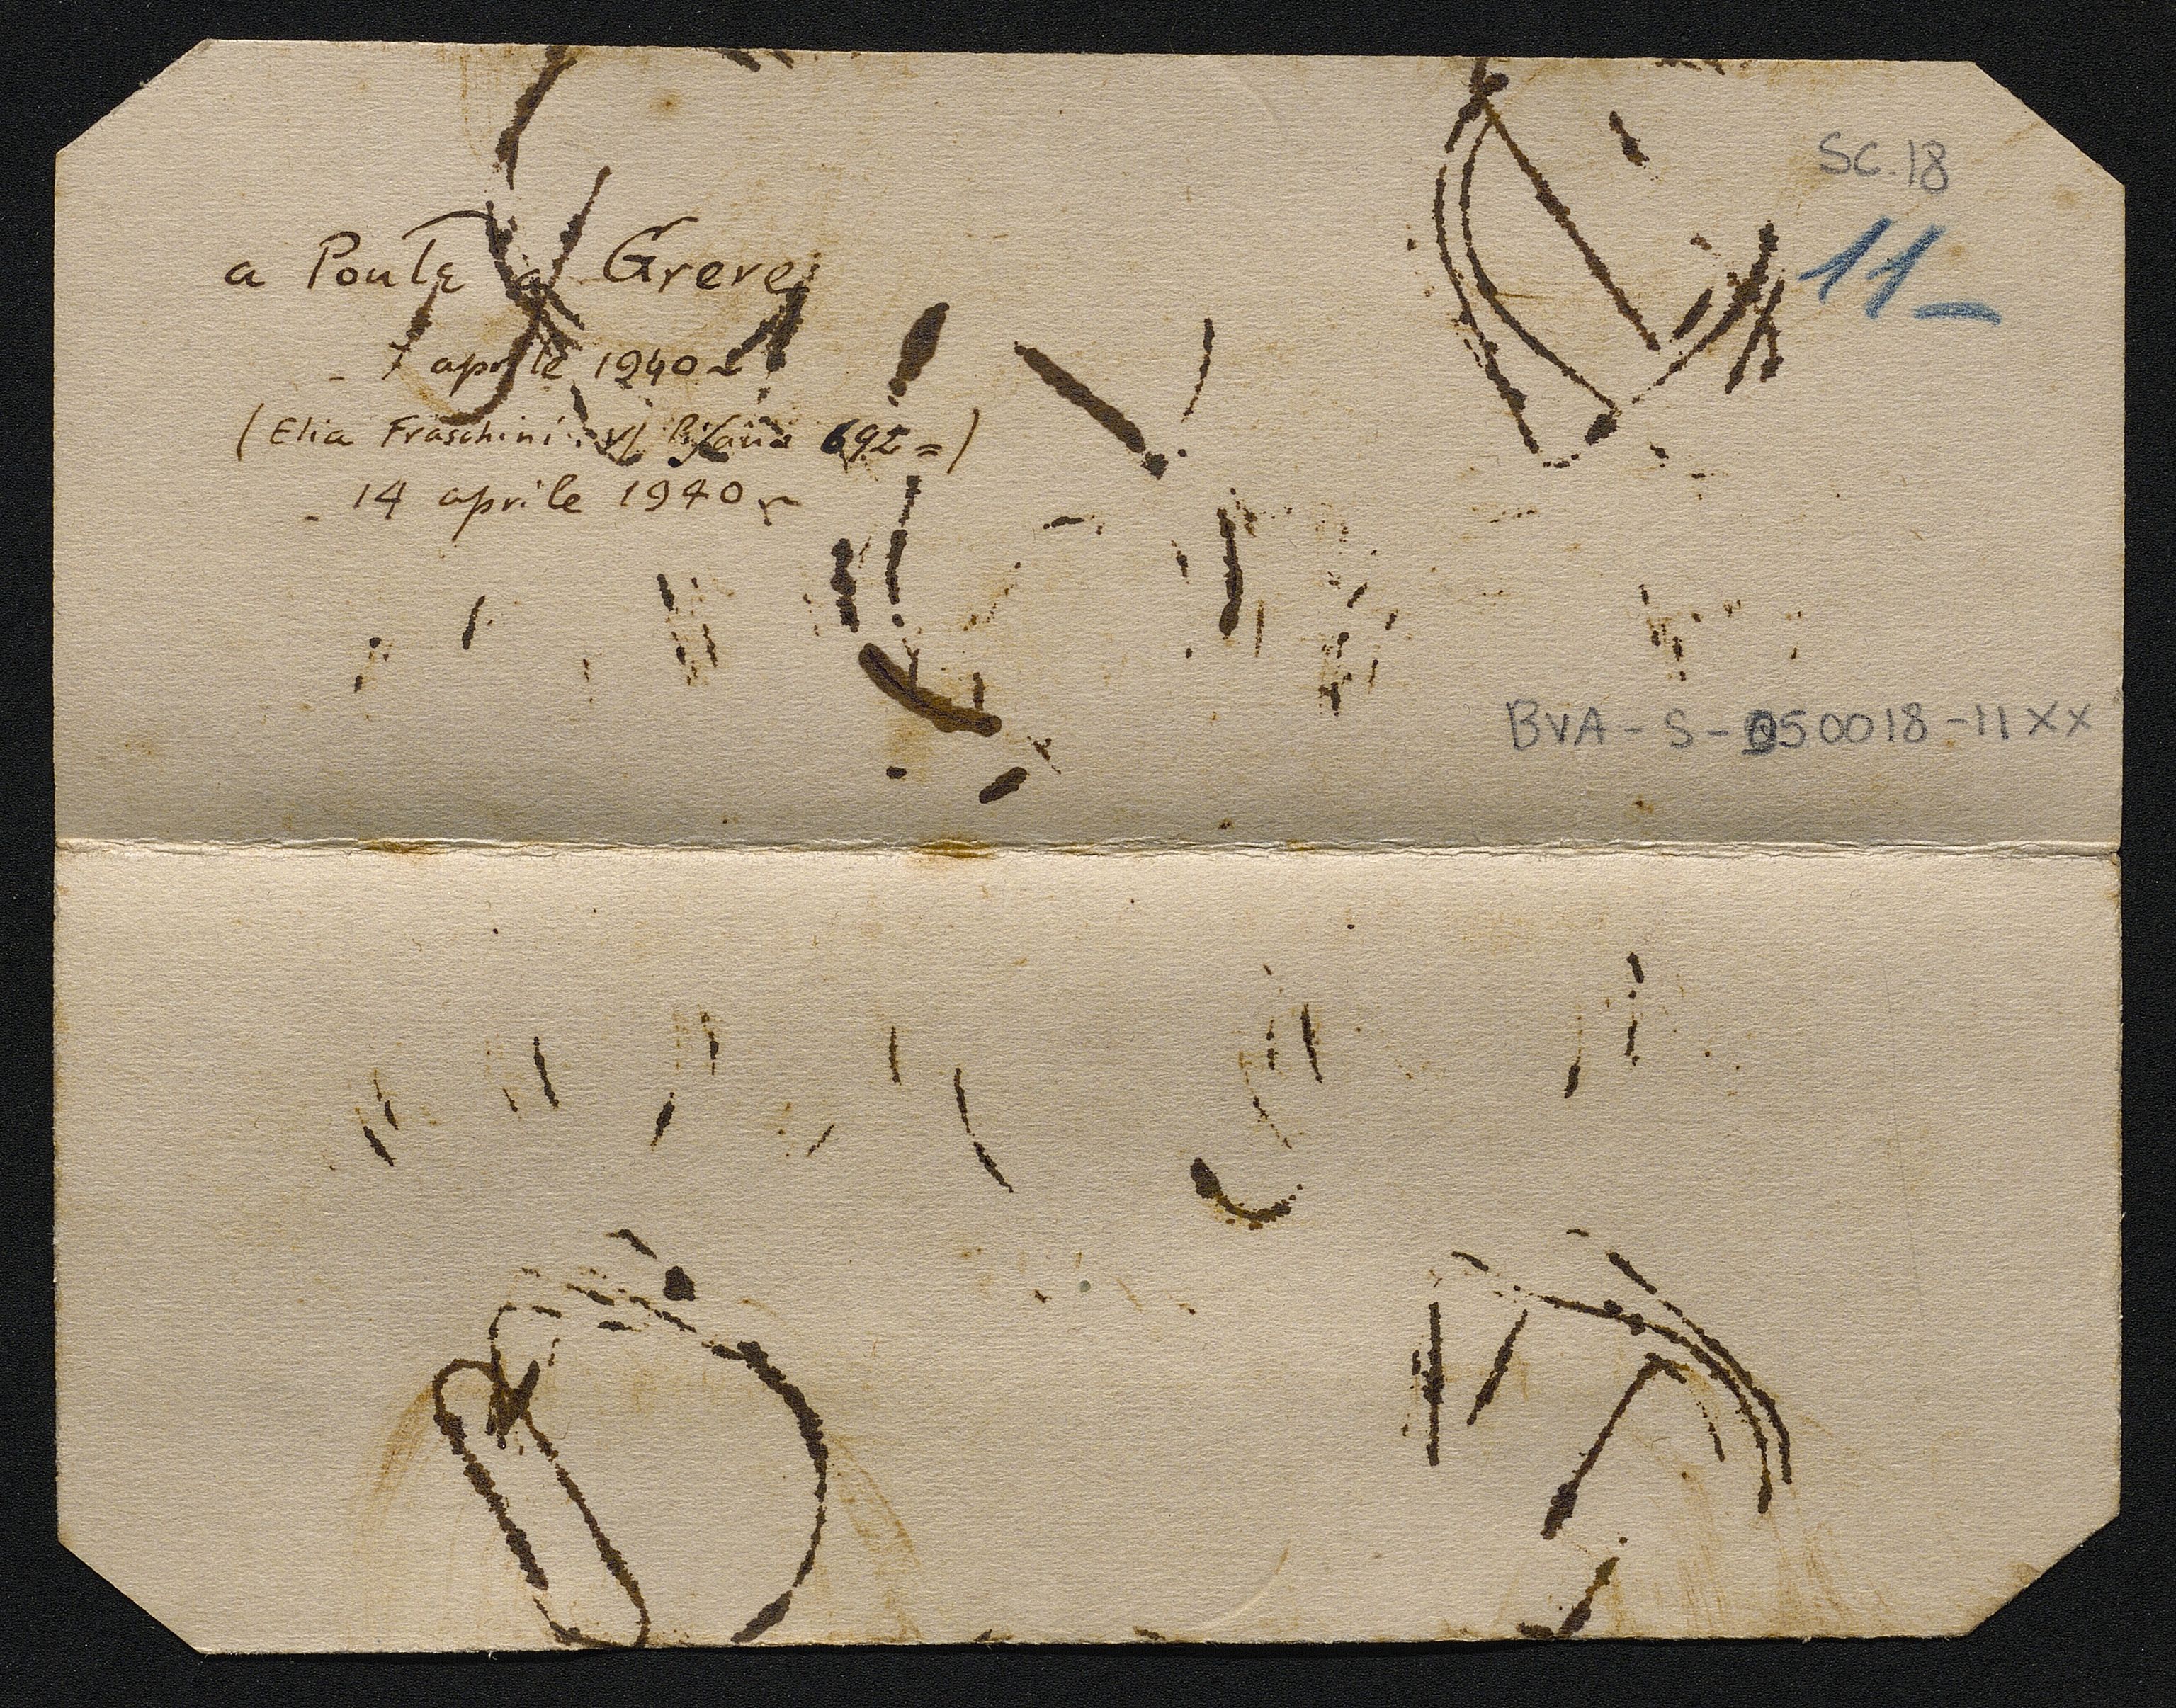 SC.18
11_
a Ponte a Greve
- 7 aprile 1940
(Elia Fraschini. v/ Pisana 692=)
- 14 aprile 1940
BVA-S-050018-11XX